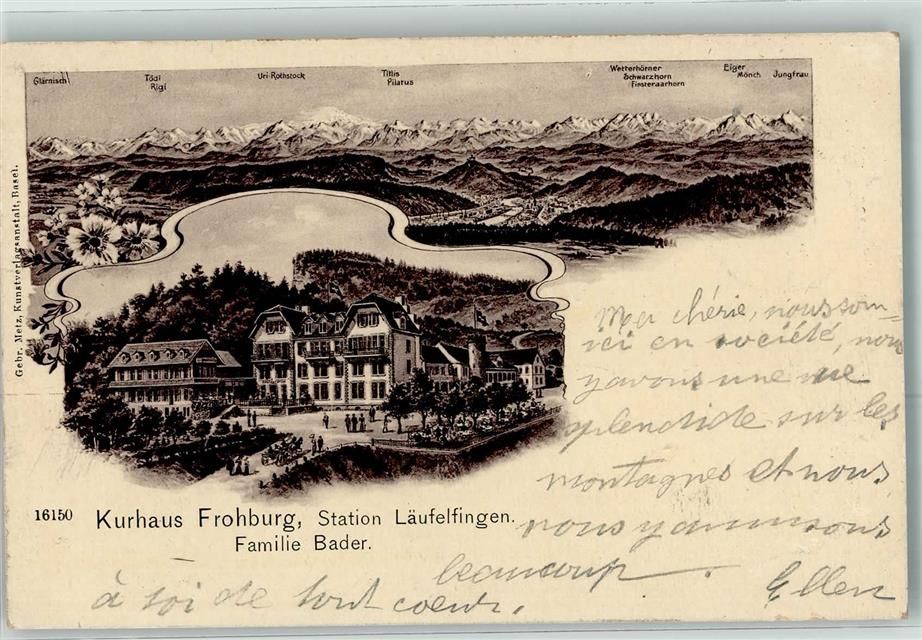 Glärnisch
Tödi
Rigi
Uri-Rothstock
Titlis
Pilatus
Wetterhörner
Schwarzhorn
Finsteraarhorn
Eiger
Mönch
Jungfrau
Gebr. Metz, Kunstverlagsanstalt, Basel.
Ma chérie, nous som-
ici en société, nous
y avons une vue
splendide sur les
montagnes et nous
nous y amusons
beaucoup.
16150 Kurhaus Frohburg, Station Läufelfingen.
Familie Bader.
à toi de tout coeur.
Ellen